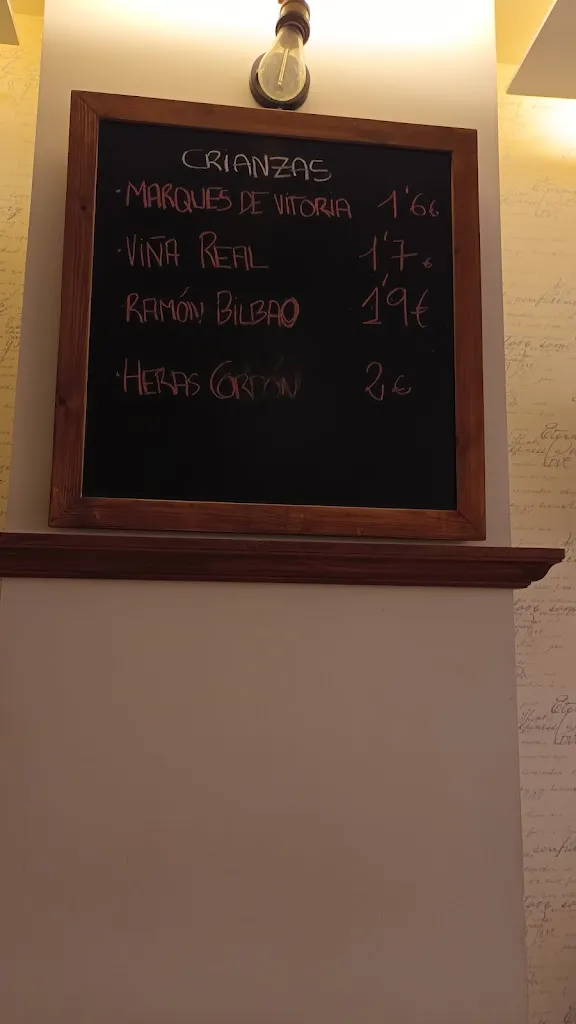 CRIANZAS
·MARQUES DE VITORIA 1'6€
·VIÑA REAL 1'7€
·RAMÓN BILBAO 1'9€
·HERAS CORDÓN 2€